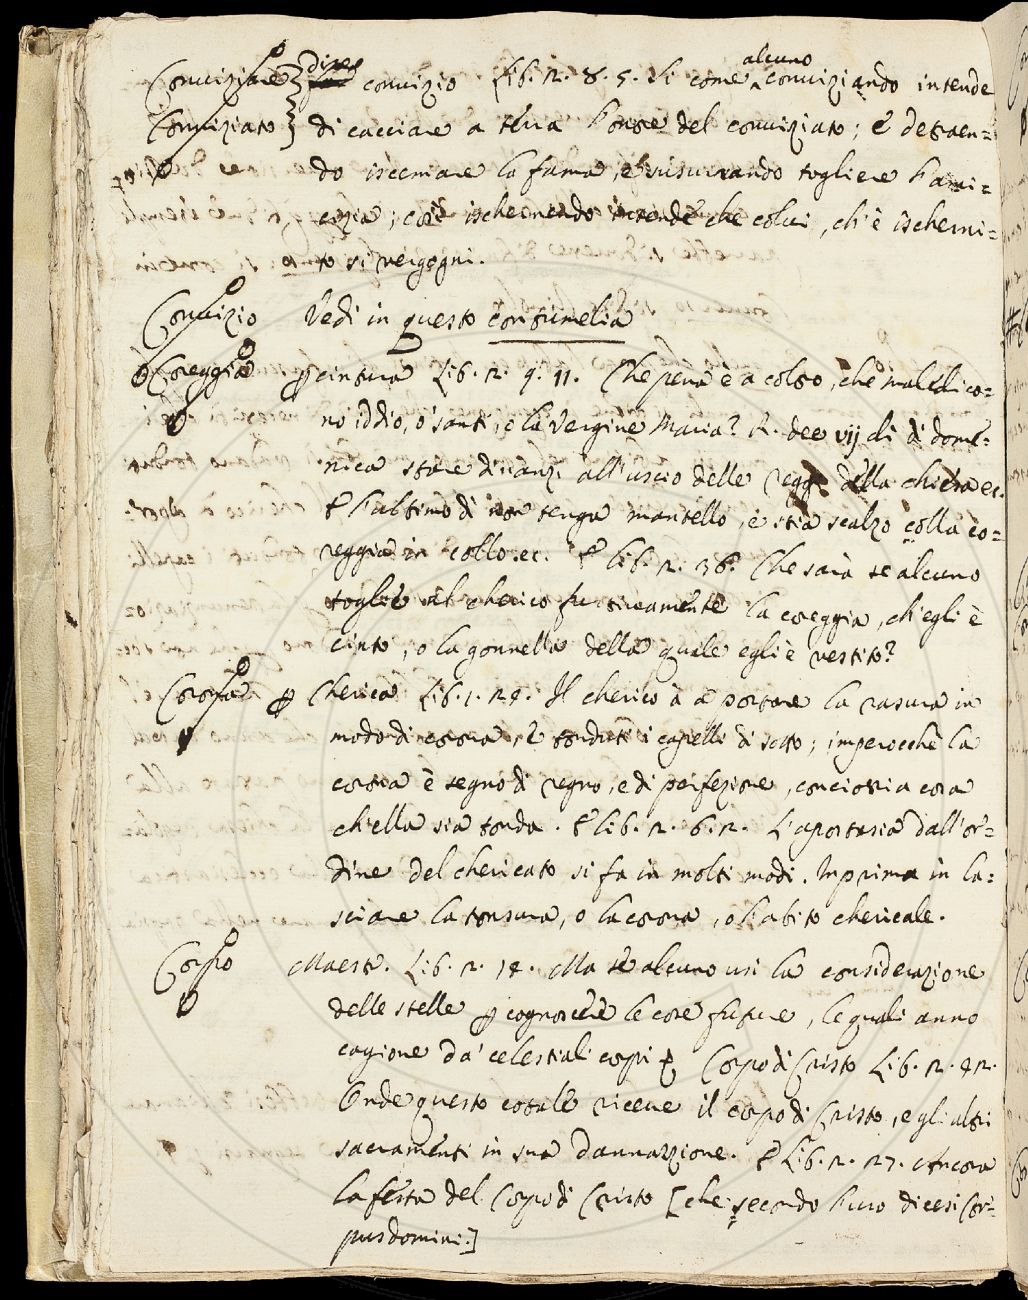 Convizia͞re } dire convizio Lib. 2. 8. 5. Si come alcuno conviziando intende
Conviziato } di cacciare a terra l'onore del conviziato; e detraen=
do iscemare la fama, e susurrando togliere l'ami=
cizia; così ischernendo intende che colui, ch'è ischerni=
to si vergogni.
Convizio Vedi in questo contumelia
Coreggia p cintura Lib. 2. 9. 11. Che pena è a coloro, che maledico=
no iddio, o' santi, e la Vergine Maria? R. dee vij dì di dome=
nica stare dinanzi all'uscio delle regge della chiesa ec.
E l'ultimo dì non tenga mantello, e stia scalzo colla co=
reggia in collo. ec. E lib. 2. 36. Che sarà se alcuno
toglie al cherico furtivamente la coreggia, ch'egli è
cinto, o la gonnella della quale egli è vestito?
Corona p Cherica Lib. 1. 24. Il cherico à a portare la rasura in
modo di corona, e tonduti i capelli di sotto; imperocchè la
corona è segno di regno, e di perfezione, conciossia cosa
ch'ella sia tonda. E lib. 2. 6. 2. L'apostasia dall'or=
dine del chericato si fa in molti modi. Inprima in la=
sciare la tonsura, o la corona, o l'abito chericale.
Corpo Maest. Lib. 2. 14. Ma se alcuno usi la considerazione
delle stelle p cognoscere le cose future, le quali anno
cagione da' celestiali corpi E Corpo di Cristo Lib. 2. 42.
Onde questo cotale riceve il corpo di Cristo, e gli altri
sacramenti in sua dannazione. E Lib. 2. 27. Ancora
la festa del Corpo di Cristo [che secondo l'uso dicesi Cor=
pusdomini.]